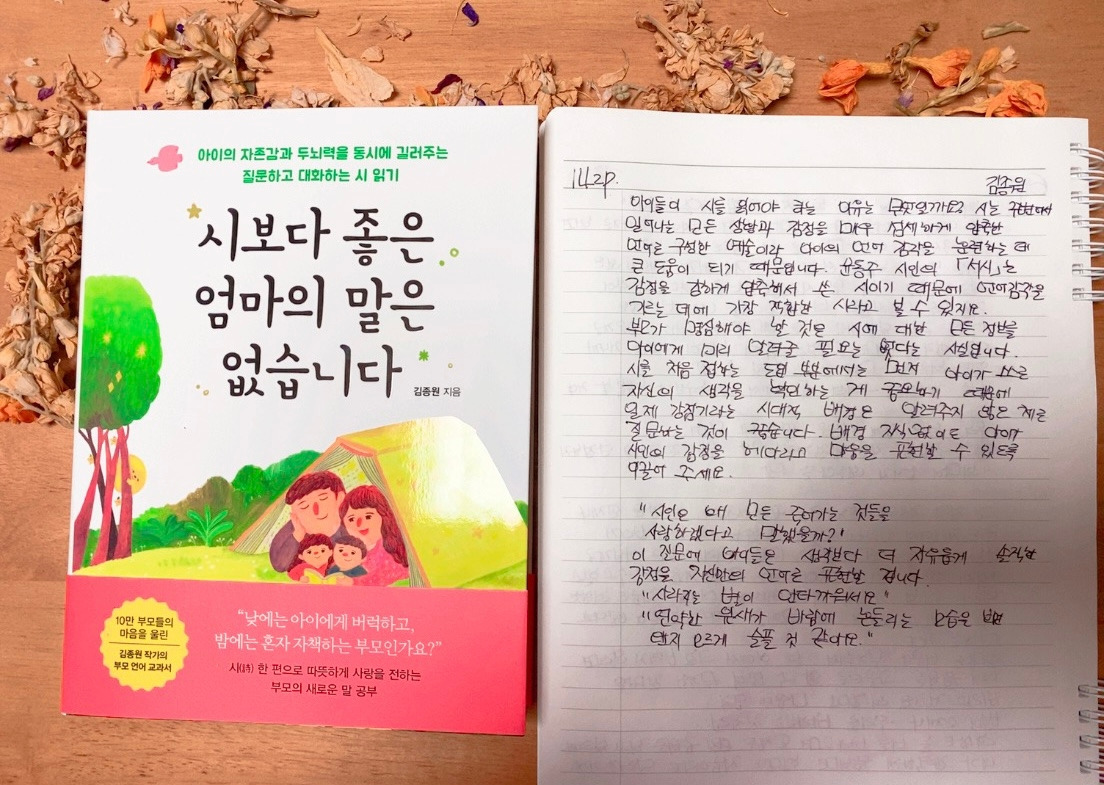 아이의 자존감과 두뇌력을 동시에 길러주는
질문하고 대화하는 시 읽기
시보다 좋은
엄마의 말은
없습니다
김종원 지음
10만 부모들의
마음을 울린
김종원 작가의
부모 언어 교과서
“낮에는 아이에게 버럭하고,
밤에는 혼자 자책하는 부모인가요?”
시(詩) 한 편으로 따뜻하게 사랑을 전하는
부모의 새로운 말 공부
142p.
김종원
아이들이 시를 읽어야 하는 이유는 무엇일까요? 시는
일어나는 모든 상황과 감정을 매우 섬세하게 압축한
언어로 구성한 예술이라 아이의 언어 감각을 훈련하는 데
큰 도움이 되기 때문입니다. 윤동주 시인의 「서시」는
감정을 강하게 압축해서 쓴 시이기 때문에 언어감각을
기르는 데에 가장 적합한 시라고 볼 수 있지요.
부모가 명심해야 할 것은 시에 대한 모든 정보를
아이에게 미리 알려줄 필요는 없다는 사실입니다.
시를 처음 접하는 도입 부분에서는 먼저 아이가 스스로
자신의 생각을 확인하는 게 중요하기 때문에
일제 강점기라는 시대적 배경은 알려주지 않은 채로
질문하는 것이 좋습니다. 배경 지식 없이도 아이가
시인의 감정을 헤아리고 마음을 표현할 수 있도록
이끌어 주세요.
"시인은 왜 모든 죽어가는 것들을
사랑하겠다고 말했을까?"
이 질문에 아이들은 생각보다 더 자유롭게 솔직한
감정을 자신만의 언어로 표현할 겁니다.
"사라지는 별이 안타까워서요"
"연약한 잎새가 바람에 흔들리는 모습을 보면
왠지 모르게 슬플 것 같아요."